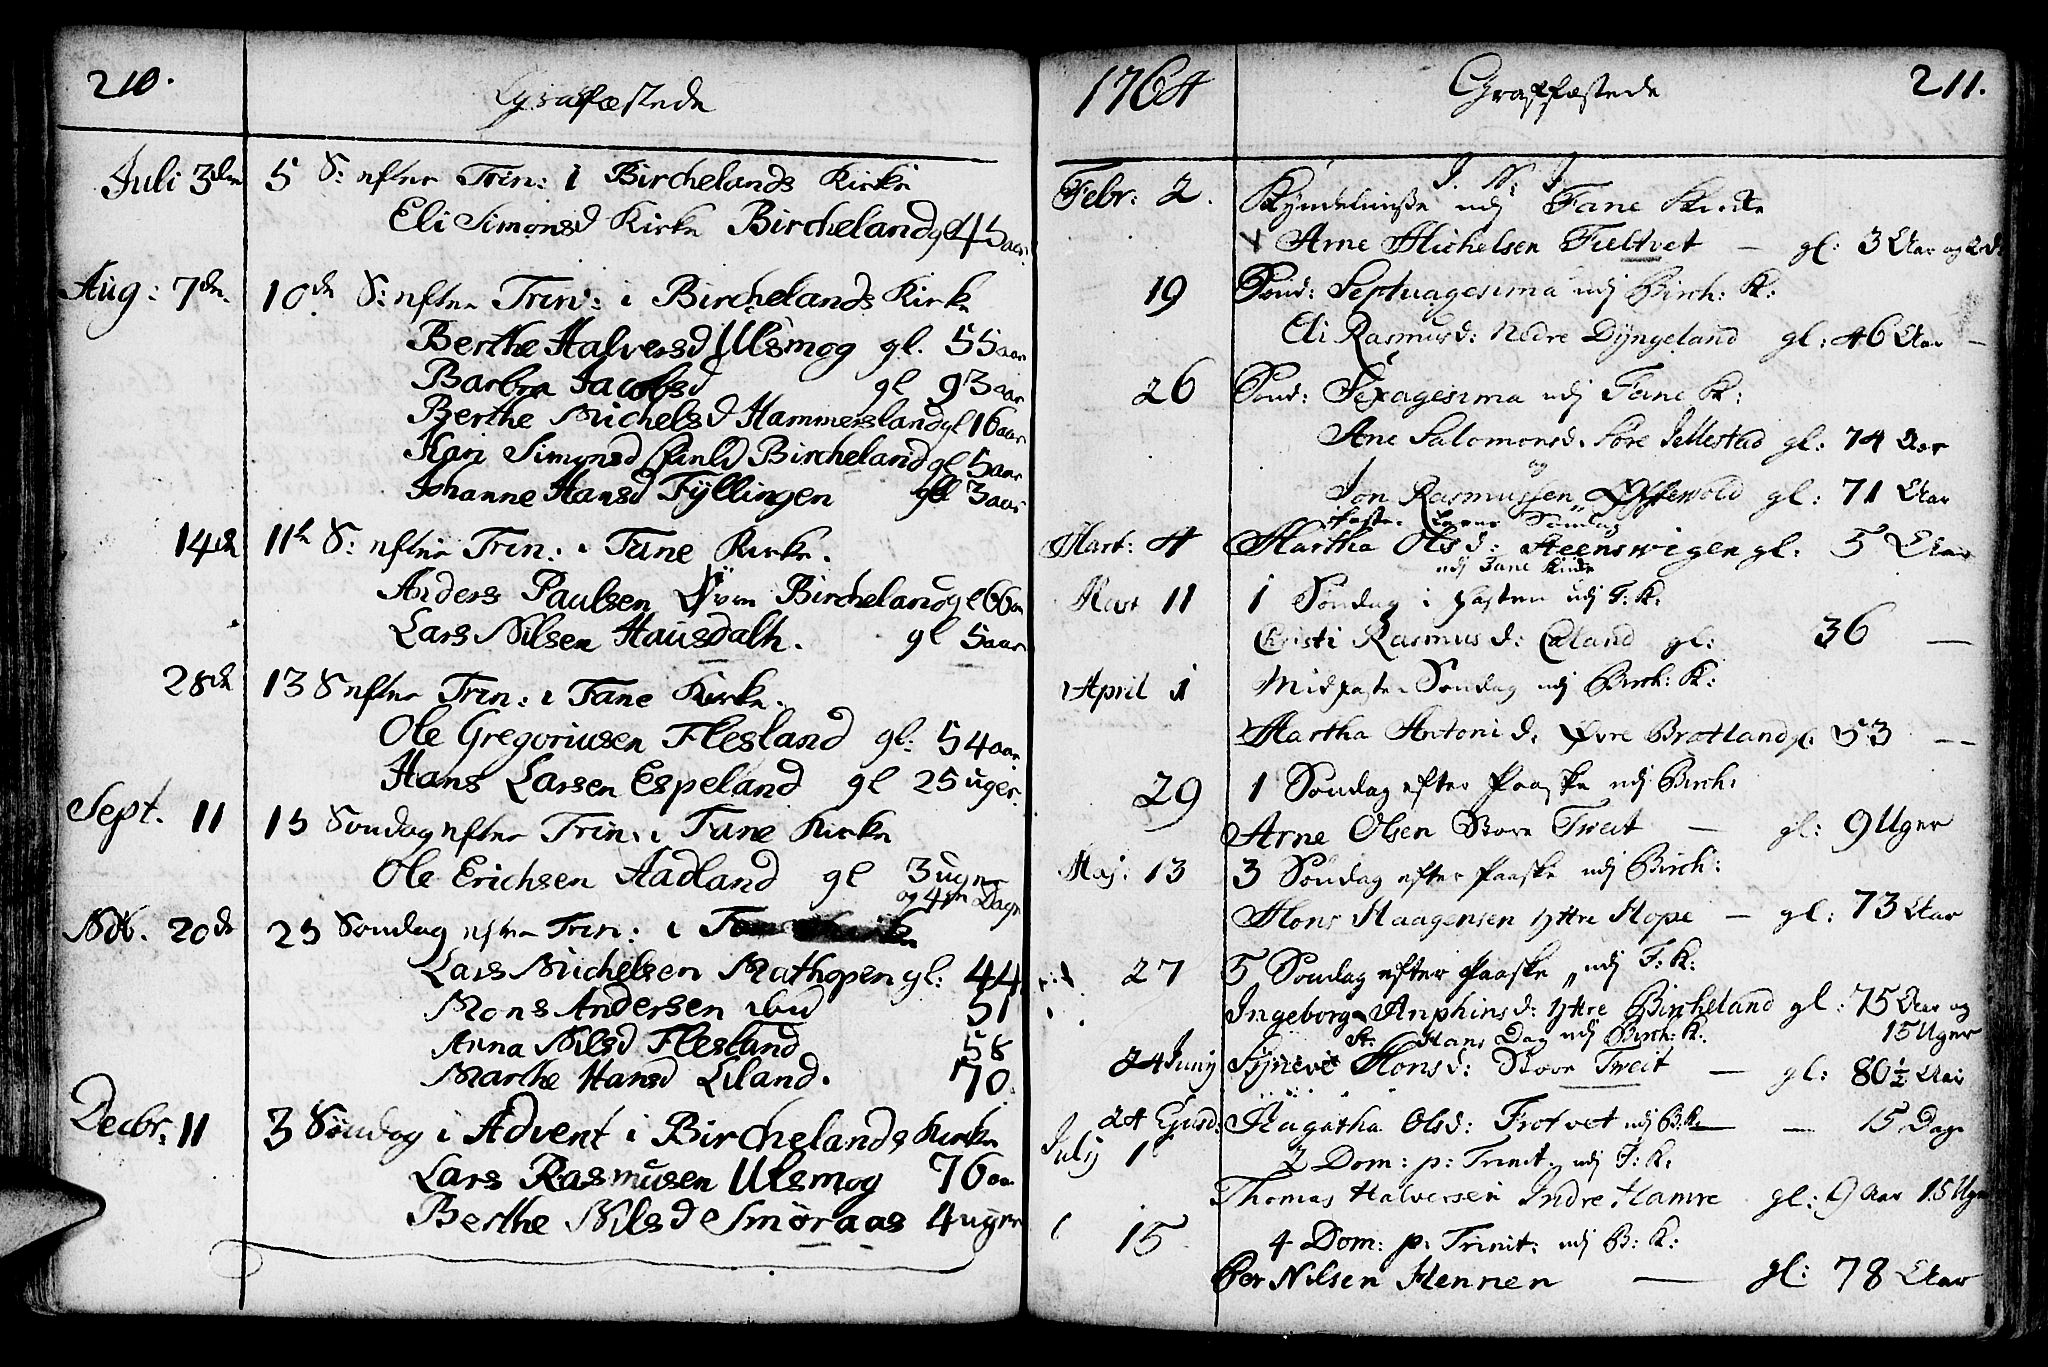 210.
Graffæstede
Juli 3die 5 S: efter Trin: i Birchelands Kirke
Eli Simonsd Kirke Bircheland gl 45 aar.
Aug: 7de. 10de S: efter Trin: i Birchelands Kirke
Berthe Halversd Ulsmog gl. 55 aar
Barbra Jacobsd gl 93 aar
Berthe Michelsd Hammersland gl 16 aar
Kari Simonsd Bircheland gl 5 aar
Johanne Hansd Fyllingen gl 3 aar
14de 11te S: efter Trin: i Fane Kirke.
Anders Paulsen Øvre Bircheland gl 66 aar
Lars Nilsen Hausdalh. gl 5 aar
28de 13 S efter Trin: i Fane Kirke.
Ole Gregoriusen Flesland gl: 54 aar.
Hans Larsen Espeland gl 25 uger.
Sept. 11 15 Søndag efter Trin: i Fane Kirke
Ole Erichsen Aadland gl 3 uger
og 4re Dage
Nov. 20de 25 Søndag efter Trin: i
Lars Michelsen Mathopen gl: 44
Mons Andersen ibid 51
Anna Nilsd Flesland 58
Marthe Hansd Liland. 70.
Decbr. 11 3 Søndag i Advent i Birchelands Kirke
Lars Rasmusen Ulsmog 76 aar
Berthe Nilsd Smøraas 4 uger
1764 Graffæstede 211.
J. N. J.
Febr: 2. Kyndelmisse udj Fane Kirke
Arne Michelsen Tveltvet — gl: 3 Aar og
19 Sønd: Septuagesima udj Birch: K:
Eli Rasmusd: Nedre Dyngeland gl: 46 Aar —
26 Sønd: Sexagesima udj Fane K:
Ane Salomonsd. Søre Jellestad gl: 74 Aar
og
Jon Rasmussen gl: 71 Aar
Faste Søndag
Mart: 4 Martha Olsd: Steenswigen gl: 5 Aar
udj Fane Kirke
Mart 11 1 Søndag i Fasten udj F: K:
Christi Rasmusd: gl: 36 —
April 1 Midfaste Søndag udj Birch: K:
Martha Antonid: Øvre Bratland gl. 53 —
29 1 Søndag efter Paaske udj Birch:
Arne Olsen Store Tweit — gl: 9 Uger
Maj: 13 3 Søndag efter Paaske udj Birch:
Mons Haagensen yttre Hope — gl: 73 Aar
27 5 Søndag efter Paaske udj F: K:
Ingeborg Anphinsd: yttre Birkeland gl: 75 Aar og
15 Uger
St. Hans Dag udj Birch: K:
24 Junij Synnevi Monsd: Store Tweit — gl: 80½ Aar
24 Ejusd. Aagatha Olsd: Trotvet udj B: K: — 15 Dage
July 1 2 Dom: p: Trinit. udj F: K:
Thomas Halversen Indre Hamre gl: 9 Aar 15 Uger
15 4 Dom: p: Trinit: udj B: K:
Per Nilsen Hennen — gl: 78 Aar